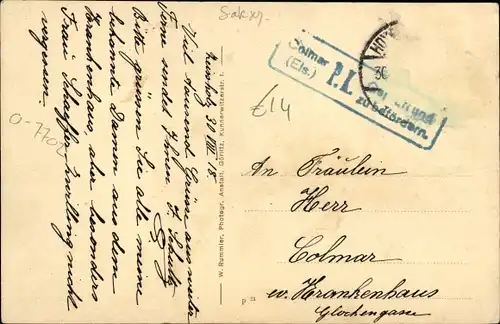 Sakxy.
Muskau 30 VIII 15
Viel Tausend Grüsse aus weiter
Ferne sendet Ihnen
Bitte grüssen Sie alle meine
bekannte Damen aus dem
Krankenhaus, aber besonders
Frau nicht
vergessen.
0-7702
W. Rummler, Photogr. Anstalt, Görlitz, Kunnerwitzerstr. 1.
£14
Colmar
(Els.)
P.K.
zu befördern.
30
An Fräulein
Herr
Colmar
ev. Krankenhaus
Glockengasse